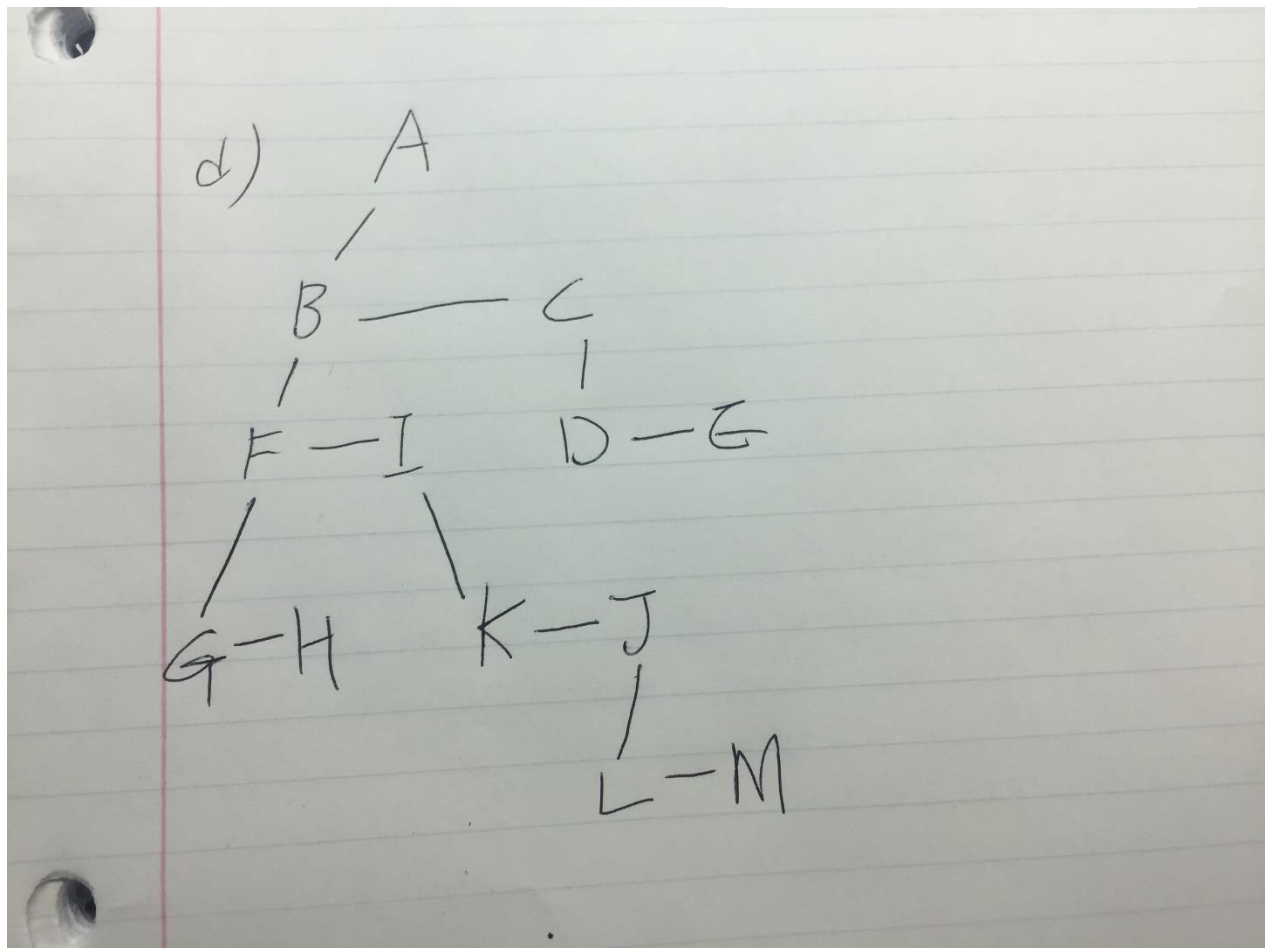 d) A
B C
F I D E
G H K J
L M